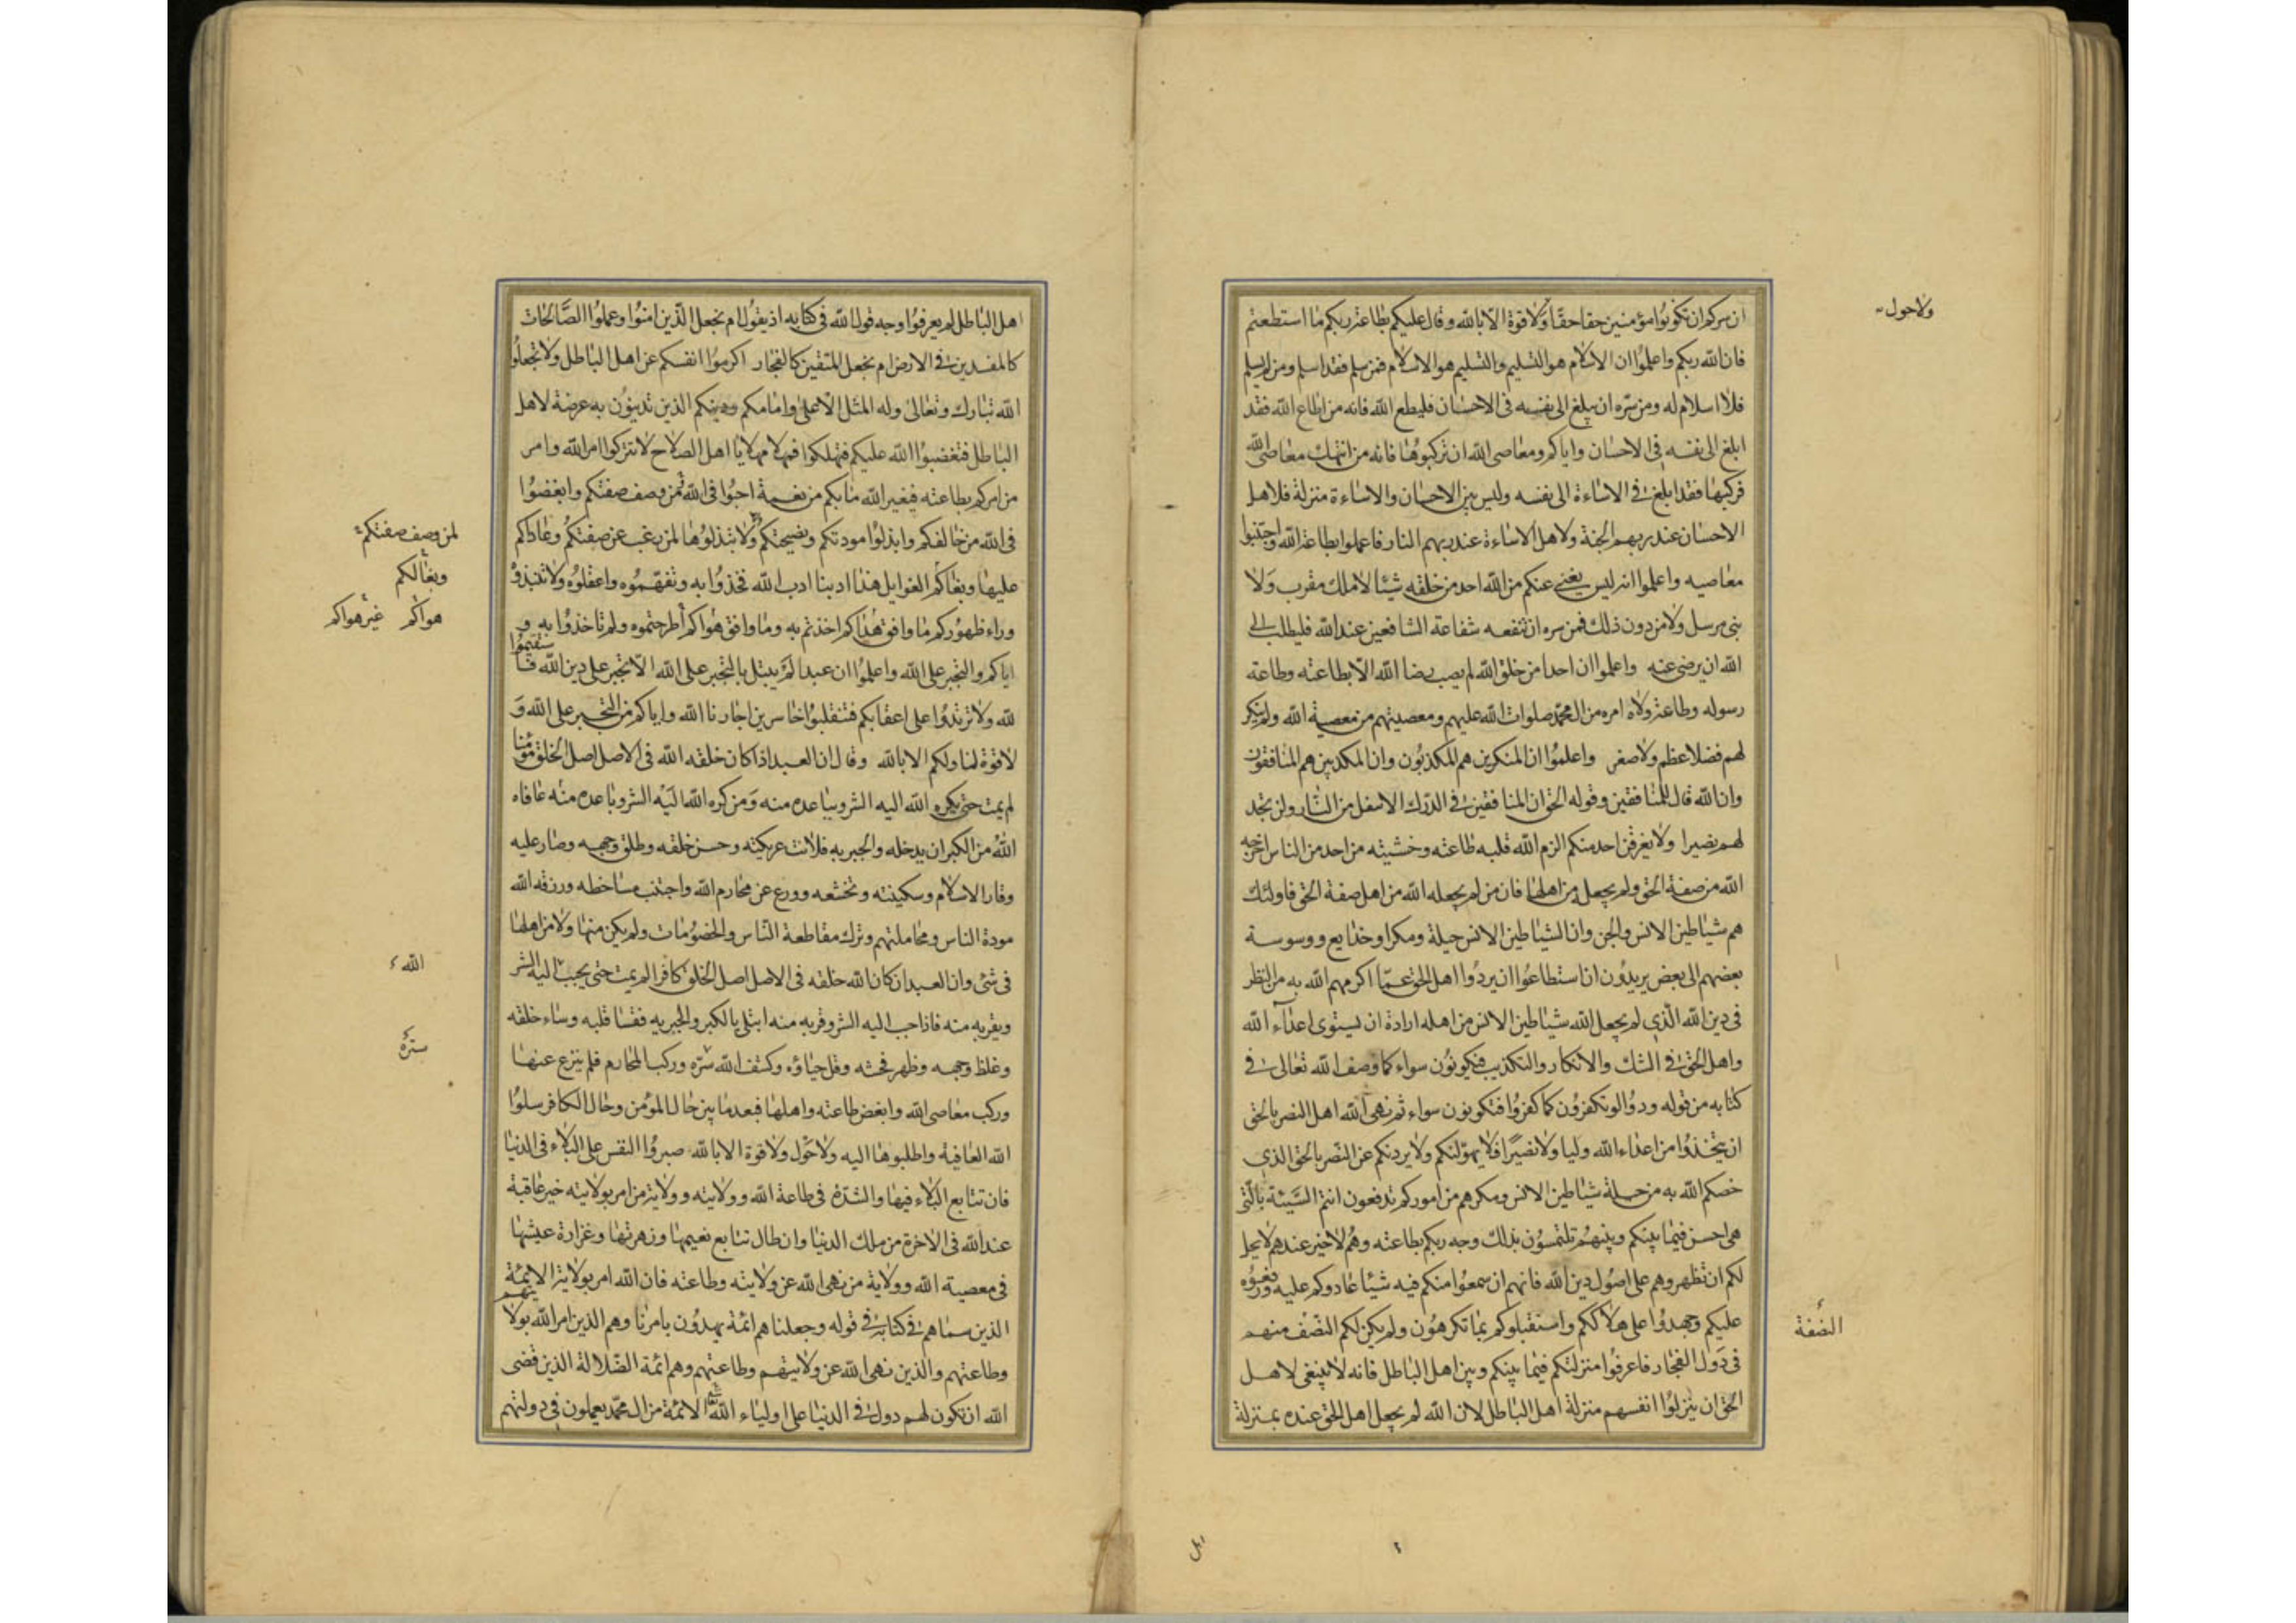 ان سركم ان تكونوا مؤمنين حقا حقا ولا قوة الا بالله وقال عليكم بطاعة ربكم ما استطعتم
ولا حول
فان الله ربكم واعلموا ان الاسلام هو التسليم والتسليم هو الاسلام فمن سلم فقد اسلم ومن لم يسلم
فلا اسلام له ومن سره ان يبلغ الى نفسه فى الاحسان فليطع الله فانه من اطاع الله فقد
ابلغ الى نفسه فى الاحسان واياكم ومعاصى الله ان تركبوها فانه من انتهك معاصى الله
فركبها فقد ابلغ فى الاساءة الى نفسه وليس بين الاحسان والاساءة منزلة فلاهل
الاحسان عند ربهم الجنة ولاهل الاساءة عند ربهم النار فاعملوا بطاعة الله واجتنبوا
معاصيه واعلموا انه ليس يغنى عنكم من الله احد من خلقه شيئا لا ملك مقرب ولا
نبى مرسل ولا من دون ذلك فمن سره ان تنفعه شفاعة الشافعين عند الله فليطلب الى
الله ان يرضى عنه واعلموا ان احدا من خلق الله لم يصب رضا الله الا بطاعته وطاعة
رسوله وطاعة ولاة امره من ال محمد صلوات الله عليهم ومعصيتهم من معصية الله ولم ينكر
لهم فضلا عظم ولا صغر واعلموا ان المنكرين هم المكذبون وان المكذبين هم المنافقون
وان الله قال للمنافقين وقوله الحق ان المنافقين فى الدرك الاسفل من النار ولن تجد
لهم نصيرا ولا يغرقن احد منكم الزم الله قلبه طاعته وخشيته من احد من الناس اخرجه
الله من صفة الحق ولم يجعله من اهلها فان من لم يجعله الله من اهل صفة الحق فاولئك
هم شياطين الانس والجن وان الشياطين الانس حيلة ومكرا وخدايع ووسوسة
بعضهم الى بعض يريدون ان استطاعوا ان يردوا اهل الحق عما اكرمهم الله به من النظر
فى دين الله الذى لم يجعل الله شياطين الانس من اهله ارادة ان يستوى اعداء الله
واهل الحق فى الشك والانكار والتكذيب فيكونون سواء كما وصف الله تعالى فى
كتابه من قوله ودوا لو تكفرون كما كفروا فتكونون سواء ثم نهى الله اهل النصر بالحق
ان يتخذوا من اعداء الله وليا ولا نصيرا فلا يهولنكم ولا يردنكم عن النصر بالحق الذى
خصكم الله به من حيلة شياطين الانس ومكرهم من اموركم تدفعون انتم السيئة بالتى
هى احسن فيما بينكم وبينهم تلتمسون بذلك وجه ربكم بطاعته وهم لا خير عندهم لا يحل
لكم ان تظهروهم على اصول دين الله فانهم ان سمعوا منكم فيه شيئا عادوكم عليه ورفعوه
عليكم وجهدوا على هلاككم واستقبلوكم بما تكرهون ولم يكن لكم النصف منهم
النصفة
فى دول الفجار فاعرفوا منزلتكم فيما بينكم وبين اهل الباطل فانه لا ينبغى لاهل
الحق ان ينزلوا انفسهم منزلة اهل الباطل لان الله لم يجعل اهل الحق عنده بمنزلة
اهل الباطل لم يعرفوا وجه قول الله فى كتابه اذ يقول ام نجعل الذين امنوا وعملوا الصالحات
كالمفسدين فى الارض ام نجعل المتقين كالفجار اكرموا انفسكم عن اهل الباطل ولا تجعلوا
الله تبارك وتعالى وله المثل الاعلى وامامكم ودينكم الذين تدينون به عرضة لاهل
الباطل فتغضبوا الله عليكم فتهلكوا فمهلا مهلا يا اهل الصلاح لا تتركوا امر الله وامر
من امركم بطاعته فيغير الله ما بكم من نعمة احبوا فى الله من وصف صفتكم وابغضوا
فى الله من خالفكم وابذلوا مودتكم ونصيحتكم ولا تبذلوها لمن رغب عن صفتكم وعاداكم
لمن وصف صفتكم
عليها وبغاكم الغوايل هذا ادبنا ادب الله فخذوا به وتفهموه واعقلوه ولا تنبذوه
وبغا لكم
وراء ظهوركم ما وافق هذاكم اخذتم به وما وافق هواكم اطرحتموه ولم تاخذوا به و
هواكم غير هواكم
اياكم والتجبر على الله واعلموا ان عبدا لم يبتل بالتجبر على الله الا تجبر على دين الله فاستقيموا
لله ولا ترتدوا على اعقابكم فتنقلبوا خاسرين اجارنا الله واياكم من التجبر على الله و
لا قوة لنا ولكم الا بالله وقال ان العبد اذا كان خلقه الله فى الاصل اصل الخلق مؤمنا
لم يمت حتى يكره الله اليه الشر ويباعده منه ومن كره الله اليه الشر وباعده منه عافاه
الله من الكبر ان يدخله والجبرية فلانت عريكته وحسن خلقه وطلق وجهه وصار عليه
وقار الاسلام وسكينته وتخشعه وورع عن محارم الله واجتنب مساخطه ورزقه الله
مودة الناس ومجاملتهم وترك مقاطعة الناس والخصومات ولم يكن منها ولا من اهلها
فى شئ وان العبد ان كان الله خلقه فى الاصل اصل الخلق كافرا لم يمت حتى يحبب اليه الشر
الله
ويقربه منه فاذا حبب اليه الشر وقربه منه ابتلى بالكبر والجبرية فقسا قلبه وساء خلقه
وغلظ وجهه وظهر فحشه وقل حياؤه وكشف الله سره وركب المحارم فلم ينزع عنها
ستره
وركب معاصى الله وابغض طاعته واهلها فبعد ما بين حال المؤمن وحال الكافر سلوا
الله العافية واطلبوها اليه ولا حول ولا قوة الا بالله صبروا النفس على البلاء فى الدنيا
فان تتابع البلاء فيها والشدة فى طاعة الله وولايته وولاية من امر بولايته خير عاقبة
عند الله فى الاخرة من ملك الدنيا وان طال تتابع نعيمها وزهرتها وغزارة عيشها
فى معصية الله وولاية من نهى الله عن ولايته وطاعته فان الله امر بولاية الائمة
الذين سماهم فى كتابه فى قوله وجعلناهم ائمة يهدون بامرنا وهم الذين امر الله بولايتهم
وطاعتهم والذين نهى الله عن ولايتهم وطاعتهم وهم ائمة الضلالة الذين قضى
الله ان تكون لهم دول فى الدنيا على اولياء الله الائمة من ال محمد يعملون فى دولتهم